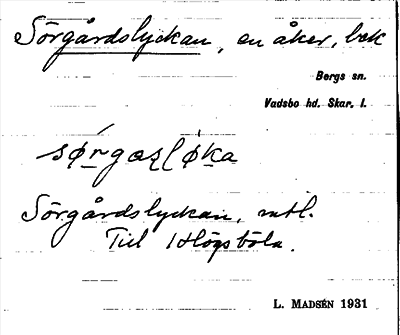 Sörgårdslyckan, en åker, bek
Bergs sn.
Vadsbo hd. Skar. l.
Sörgårdslyckan, mtl.
Till Högsböla.
L. MADSÉN 1931